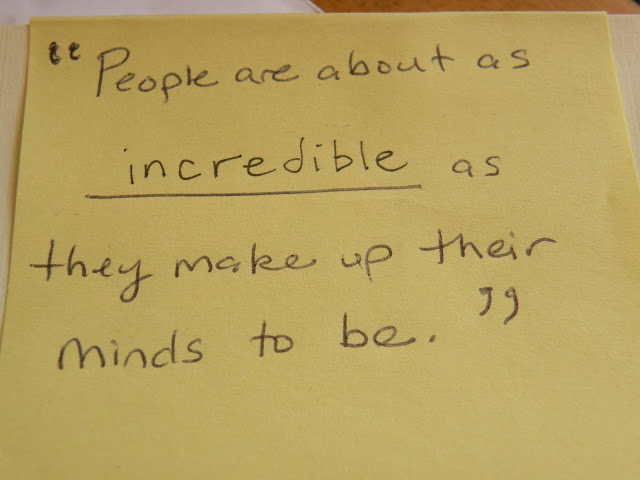 “People are about as
incredible as
they make up their
minds to be.”